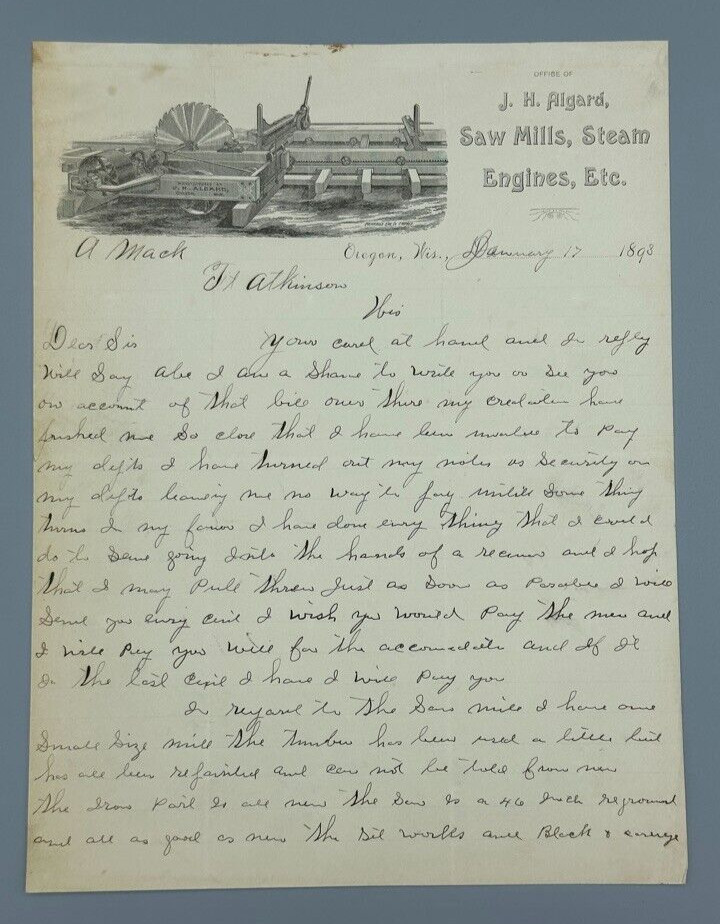 OFFICE OF
J. H. Algard,
Saw Mills, Steam
Engines, Etc.
J. H. ALGARD,
A Mack Oregon, Wis., January 17 1893
Ft Atkinson
Wis
Dear Sir Your card at hand and In reply
Will Say abe I am a Shame to write you or See you
on account of that bill over there my crediters have
pushed me So close that I have been unable to Pay
my depts I have turned out my notes as Security on
my depts leaving me no way to pay untill Some thing
turns In my favor I have done evry thing that I could
do to Save going Into the hands of a recever and I hop
that I may Pull threw Just as Soon as Posable I will
Send you evry cent I wish you would Pay the men and
I will Pay you well for the accomodation and If It
Is the last Cent I have I will Pay you
In regard to the Saw mill I have one
Small Size mill the timber has been used a little but
has all been repainted and can not be told from new
the Iron Part Is all new the Saw Is a 46 Inch reground
and all as good as new the Set works and Block &